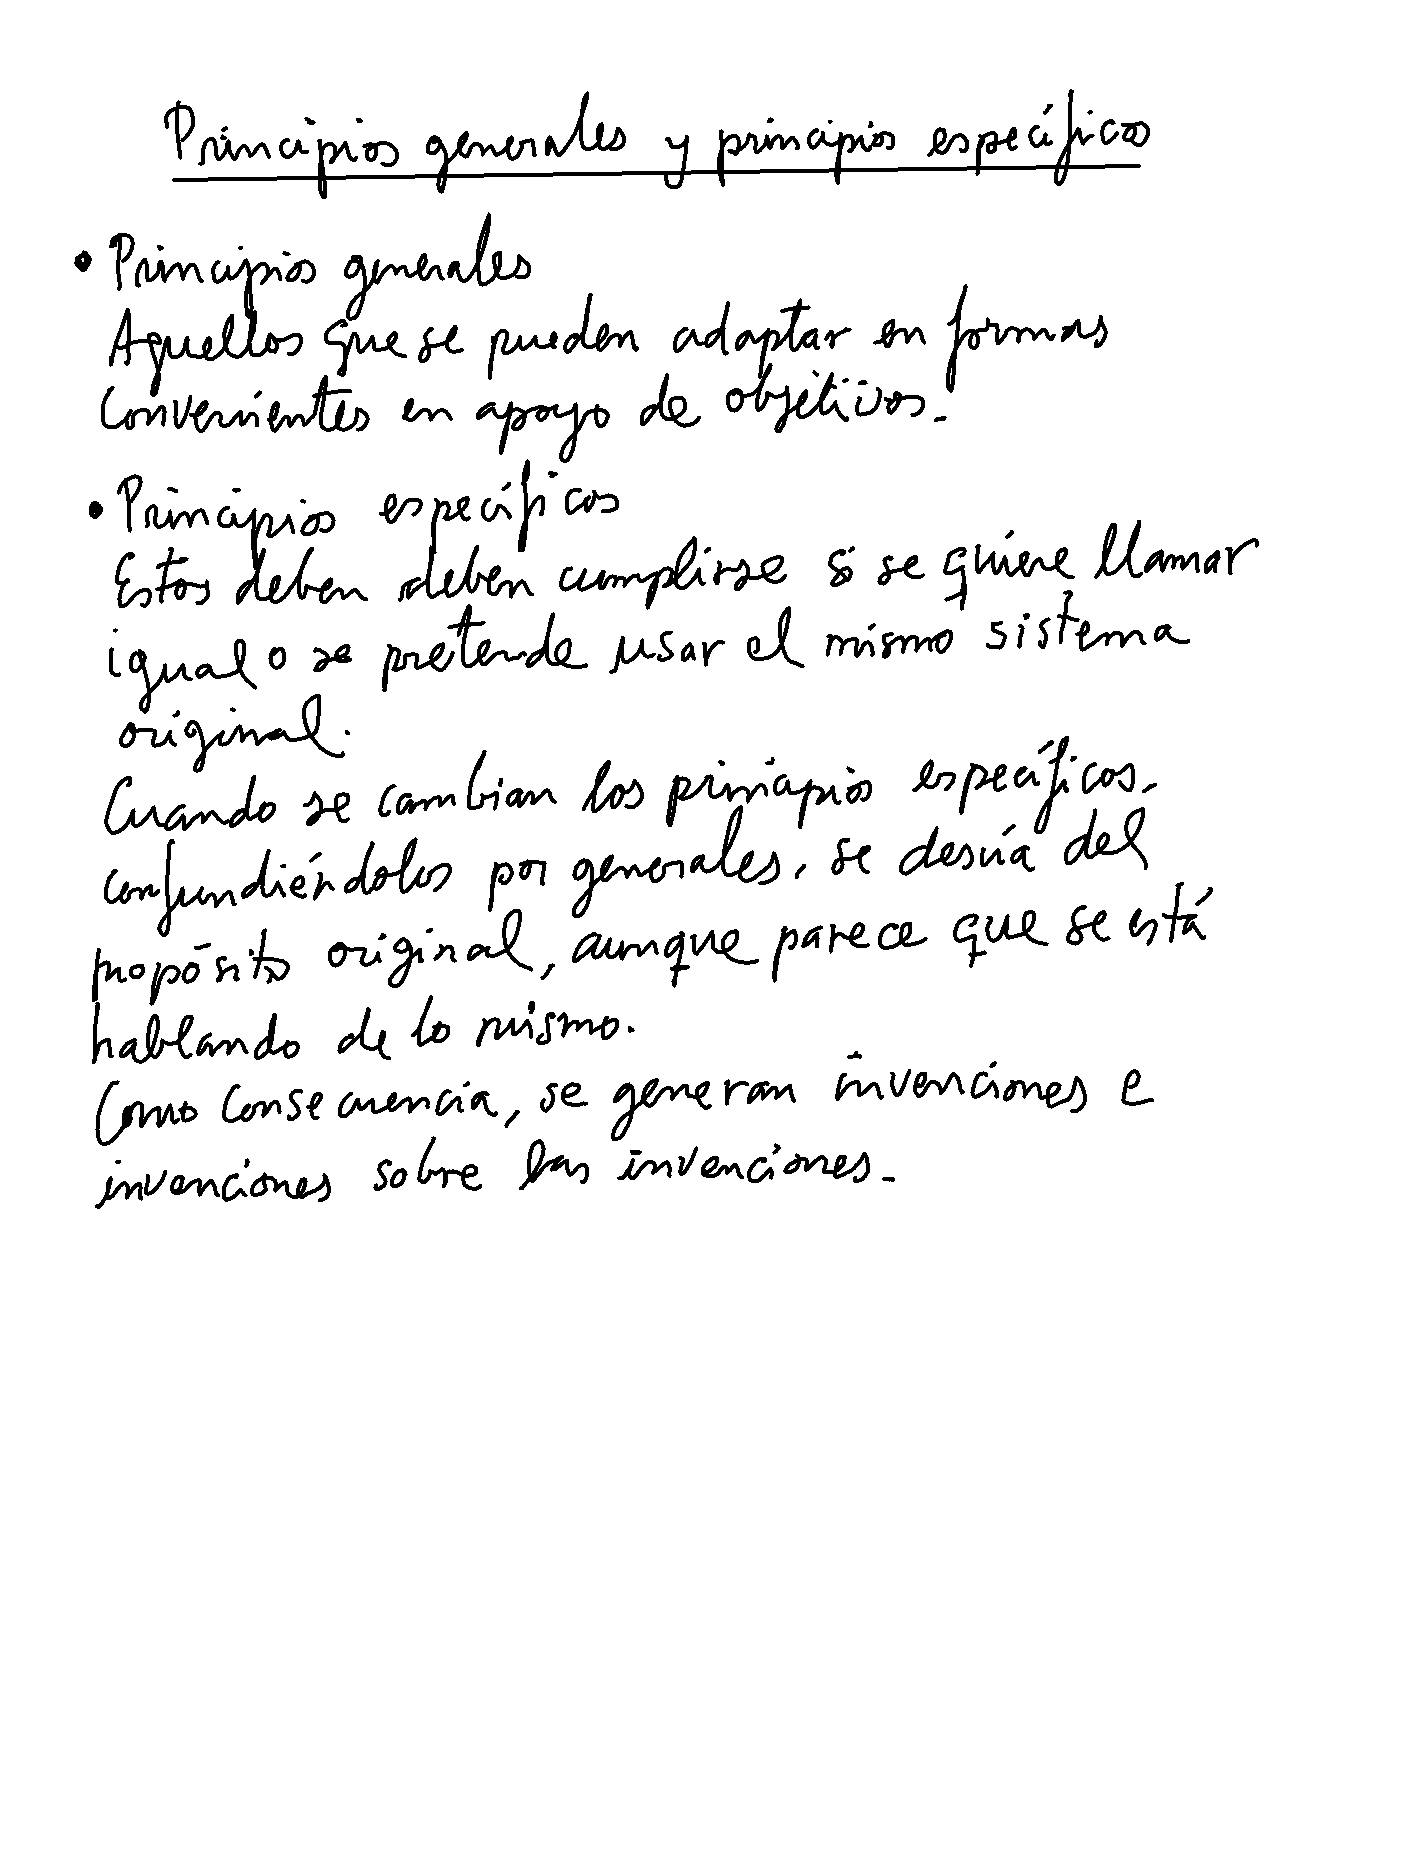 Principios generales y principios específicos
• Principios generales
Aquellos que se pueden adaptar en formas
convenientes en apoyo de objetivos.
• Principios específicos
Estos deben deben cumplirse si se quiere llamar
igual o se pretende usar el mismo sistema
original.
Cuando se cambian los principios específicos,
confundiéndolos por generales, se desvía del
propósito original, aunque parece que se está
hablando de lo mismo.
Como consecuencia, se generan invenciones e
invenciones sobre las invenciones.